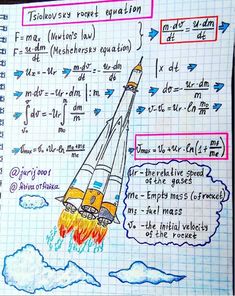 Tsiolkovsky rocket equation
F = ma, (Newton's law)
F = u·dm/dt (Meshchersky equation)
m·dv/dt = u·dm/dt
Ux = -Ur → m·dv/dt = -Ur·dm/dt | x dt
m·dv = -Ur·dm | :m
dv = -Ur·dm/m
∫dv = -Ur∫dm/m
v - v₀ = Ur·ln m₀/m
Vmax = v₀ + Ur·ln
Vmax = v₀ + Ur·ln(1 + ms/me)
Ur - the relative speed
of the gases
me - Empty mass (of rocket)
ms - fuel mass
v₀ - the initial velocity
of the rocket